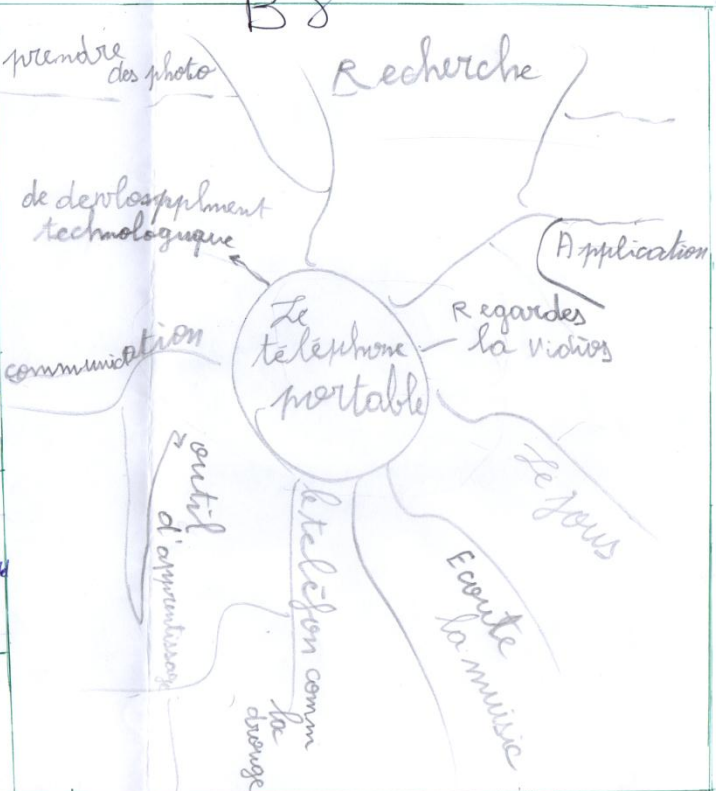 B8
prendre
des photo
Recherche
de devlospplment
technologuque
Application
Le
téléphone
portable
Regardes
la vidios
communication
Le jous
outil
d'apprentissage
le teléfon comm
la
drouge
Ecoute
la muisic